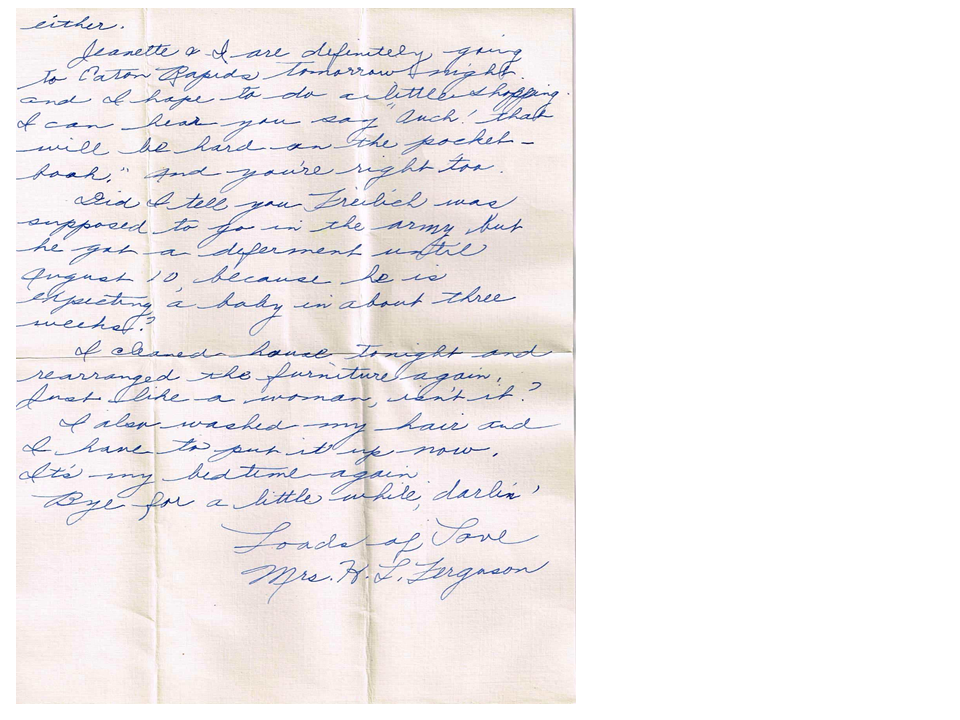 either.
Jeanette & I are definitely going
to Eaton Rapids tomorrow night.
and I hope to do a little shopping.
I can hear you say "Ouch! that
will be hard on the pocket-
book." And you're right too.
Did I tell you Freilich was
supposed to go in the army but
he got a deferment until
August 10, because he is
expecting a baby in about three
weeks?
I cleaned house tonight and
rearranged the furniture again.
Just like a woman, isn't it?
I also washed my hair and
I have to put it up now.
It's my bedtime again
Bye for a little while, darlin'
Loads of Love
Mrs. H. L. Ferguson